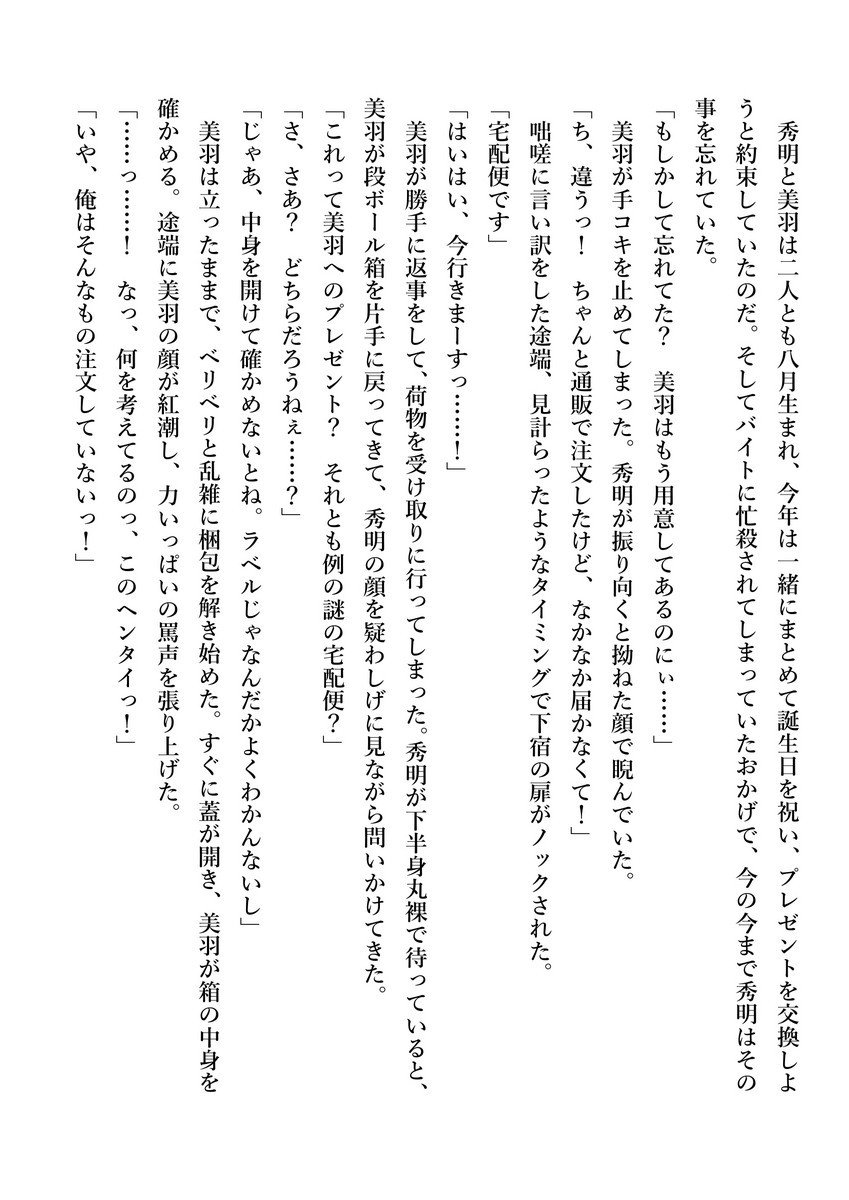 秀明と美羽は二人とも八月生まれ、今年は一緒にまとめて誕生日を祝い、プレゼントを交換しよ
うと約束していたのだ。そしてバイトに忙殺されてしまっていたおかげで、今の今まで秀明はその
事を忘れていた。
「もしかして忘れてた？　美羽はもう用意してあるのにぃ……」
美羽が手コキを止めてしまった。秀明が振り向くと拗ねた顔で睨んでいた。
「ち、違うっ！　ちゃんと通販で注文したけど、なかなか届かなくて！」
咄嗟に言い訳をした途端、見計らったようなタイミングで下宿の扉がノックされた。
「宅配便です」
「はいはい、今行きまーすっ……！」
美羽が勝手に返事をして、荷物を受け取りに行ってしまった。秀明が下半身丸裸で待っていると、
美羽が段ボール箱を片手に戻ってきて、秀明の顔を疑わしげに見ながら問いかけてきた。
「これって美羽へのプレゼント？　それとも例の謎の宅配便？」
「さ、さあ？　どちらだろうねぇ……？」
「じゃあ、中身を開けて確かめないとね。ラベルじゃなんだかよくわかんないし」
美羽は立ったままで、ベリベリと乱雑に梱包を解き始めた。すぐに蓋が開き、美羽が箱の中身を
確かめる。途端に美羽の顔が紅潮し、力いっぱいの罵声を張り上げた。
「……っ……！　なっ、何を考えてるのっ、このヘンタイっ！」
「いや、俺はそんなもの注文していないっ！」